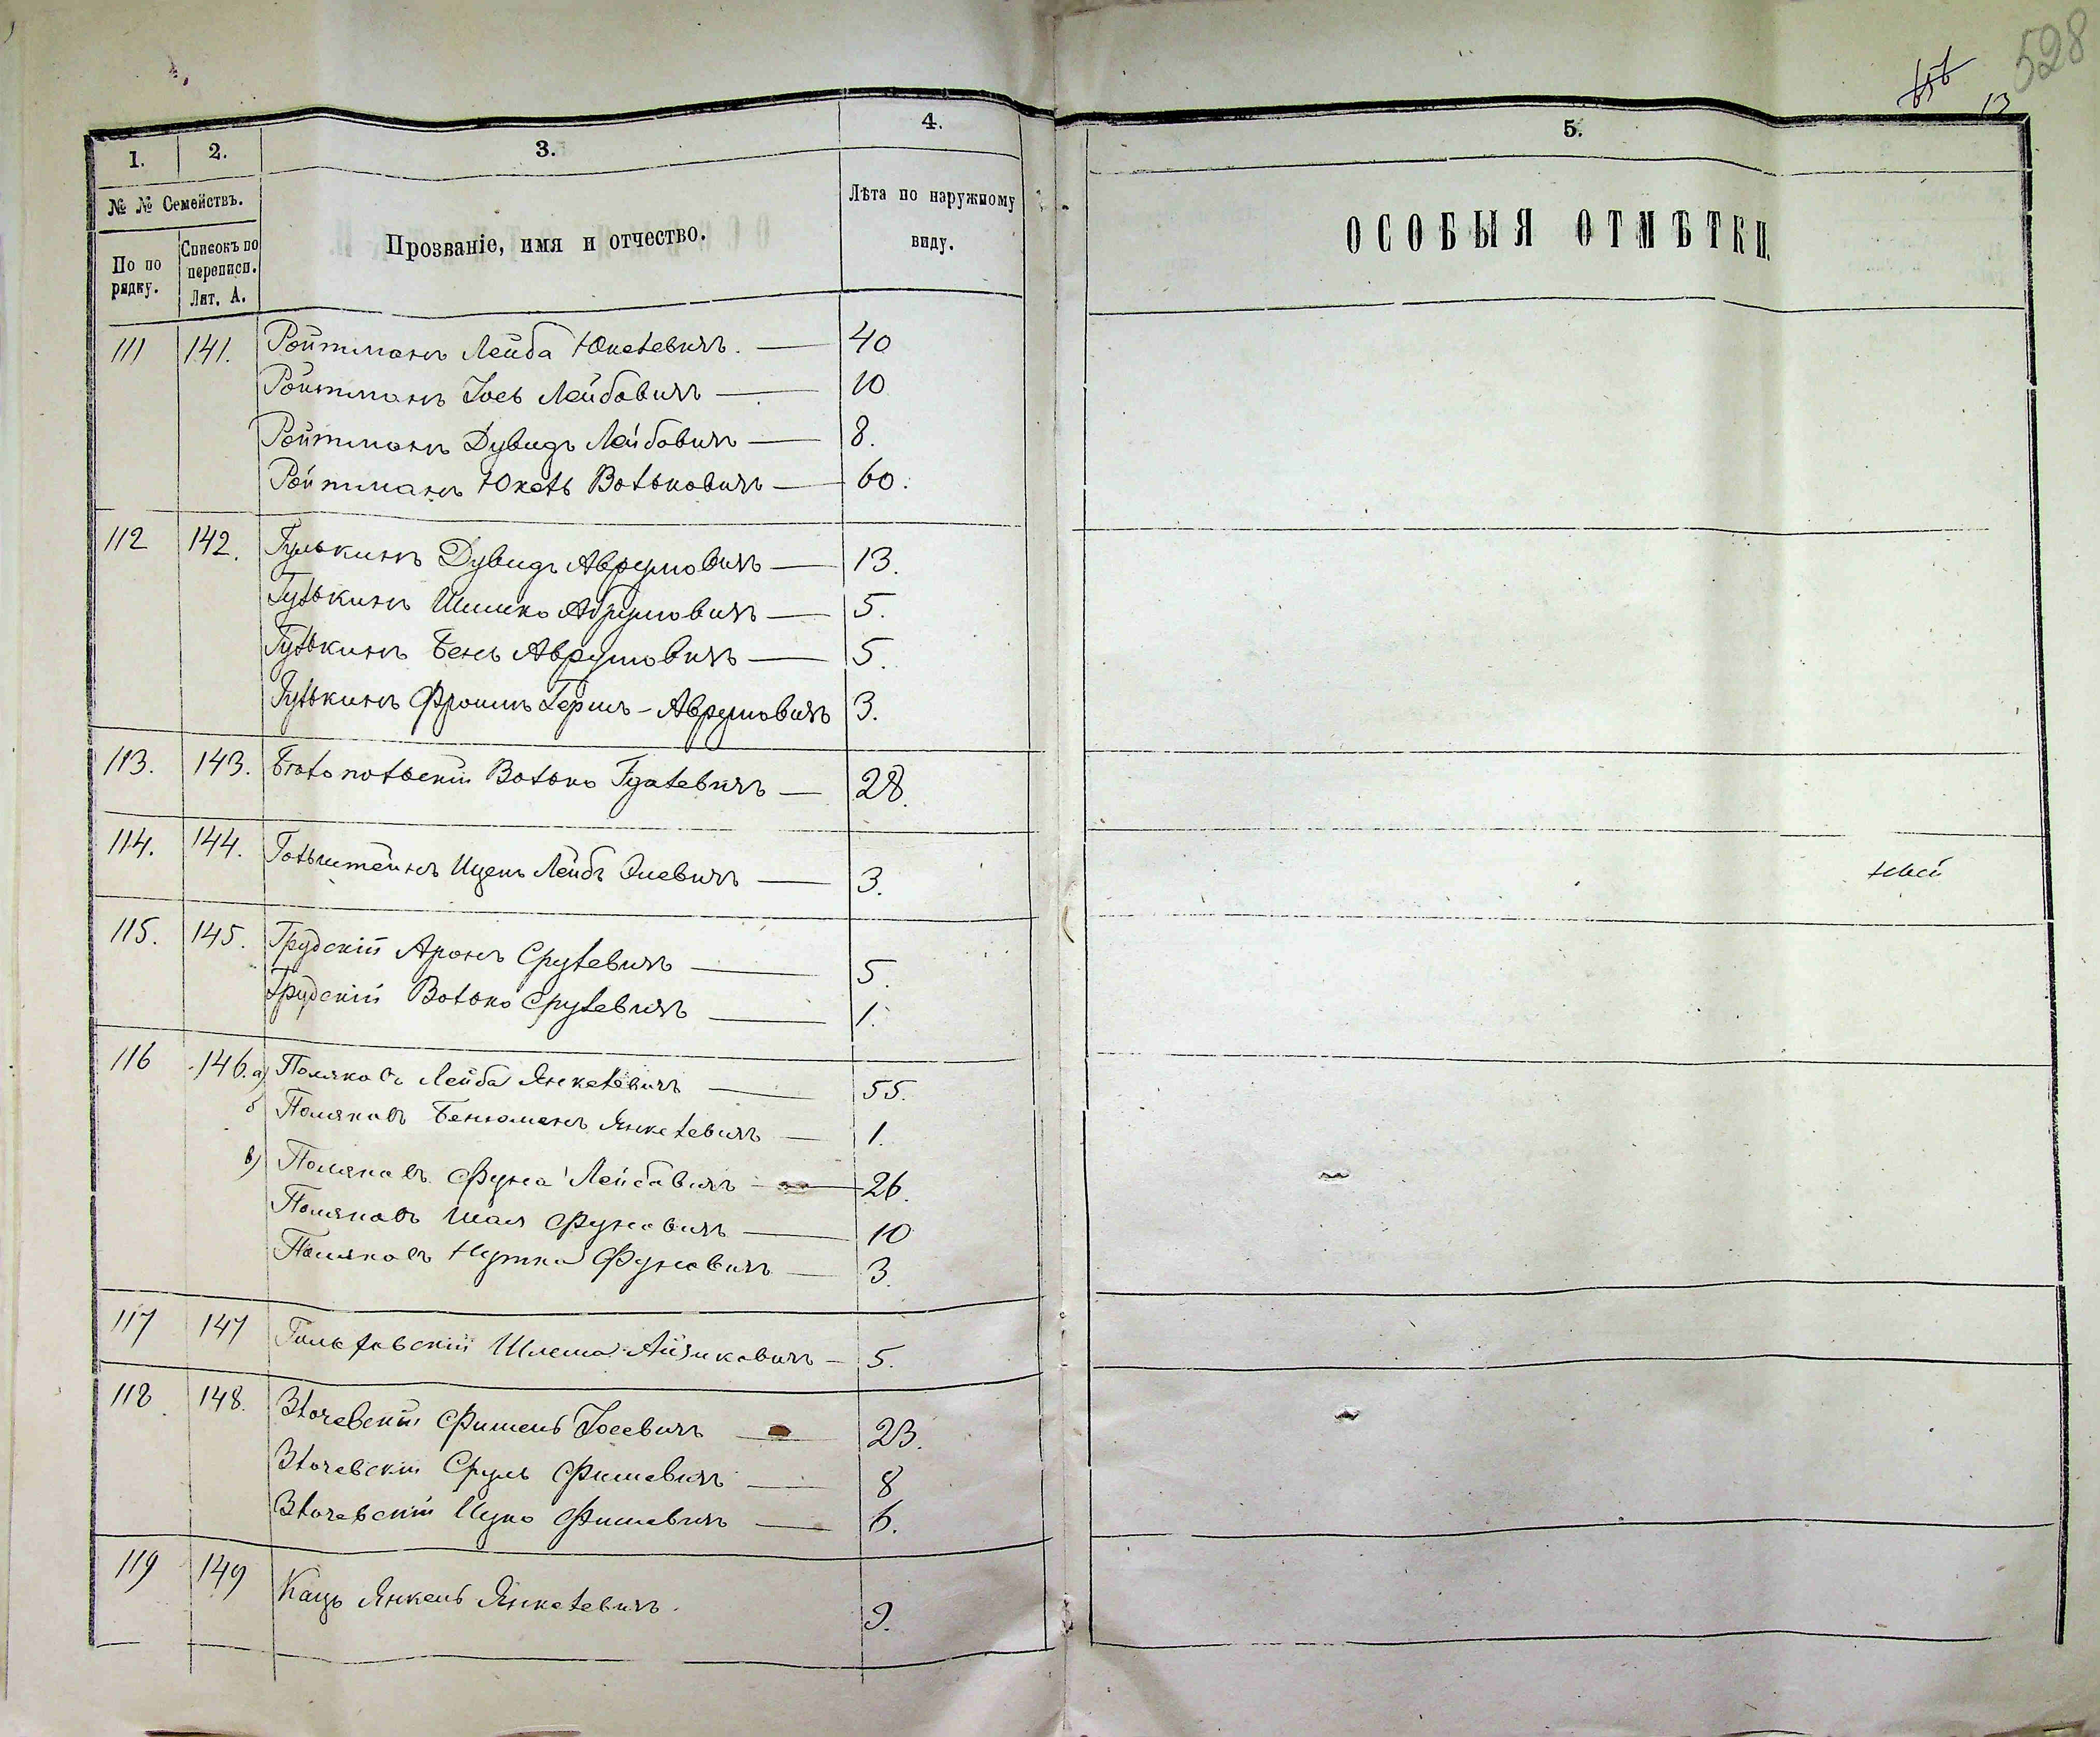 528
13
1.
2.
3.
4.
5.
№ № Семействъ.
По по рядку.
Списокъ по переписи. Лит. А.
Прозваніе, имя и отчество.
Лѣта по наружному виду.
ОСОБЫЯ ОТМѢТКИ.
111 141. Ройтманъ Лейба Юкелевичъ. — 40
Ройтманъ Іось Лейбовичъ — 10
Ройтманъ Дувидъ Лейбовичъ — 8.
Ройтманъ Юкель Вольковичъ — 60.
112 142. Гулькинъ Дувидъ Аврумовичъ — 13.
Гулькинъ Шимко Аврумовичъ — 5.
Гулькинъ Бень Аврумовичъ — 5.
Гулькинъ Фроимъ Гершъ-Аврумовичъ 3.
113. 143. Бѣлопольскій Волько — 28.
114. 144. Гольштейнъ Ицекъ Лейбъ — 3.
115. 145. Грудскій Аронъ Срулевичъ — 5.
Грудскій Волько Срулевичъ — 1.
116 146. а) Поляковъ Лейба Янкелевичъ — 55.
б Поляковъ Беньоменъ Янкелевичъ — 1.
в) Поляковъ Фуна Лейбовичъ — 26.
Поляковъ Шая Фуновичъ — 10
Поляковъ Нутка Фуновичъ — 3.
117 147 Шлема Айзиковичъ — 5.
118 148. Злочевскій Фишель Іосевичъ — 23.
Злочевскій Сруль Фишевичъ — 8
Злочевскій Ицко Фишевичъ — 6.
119 149 Кацъ Янкель Янкелевичъ. 9.